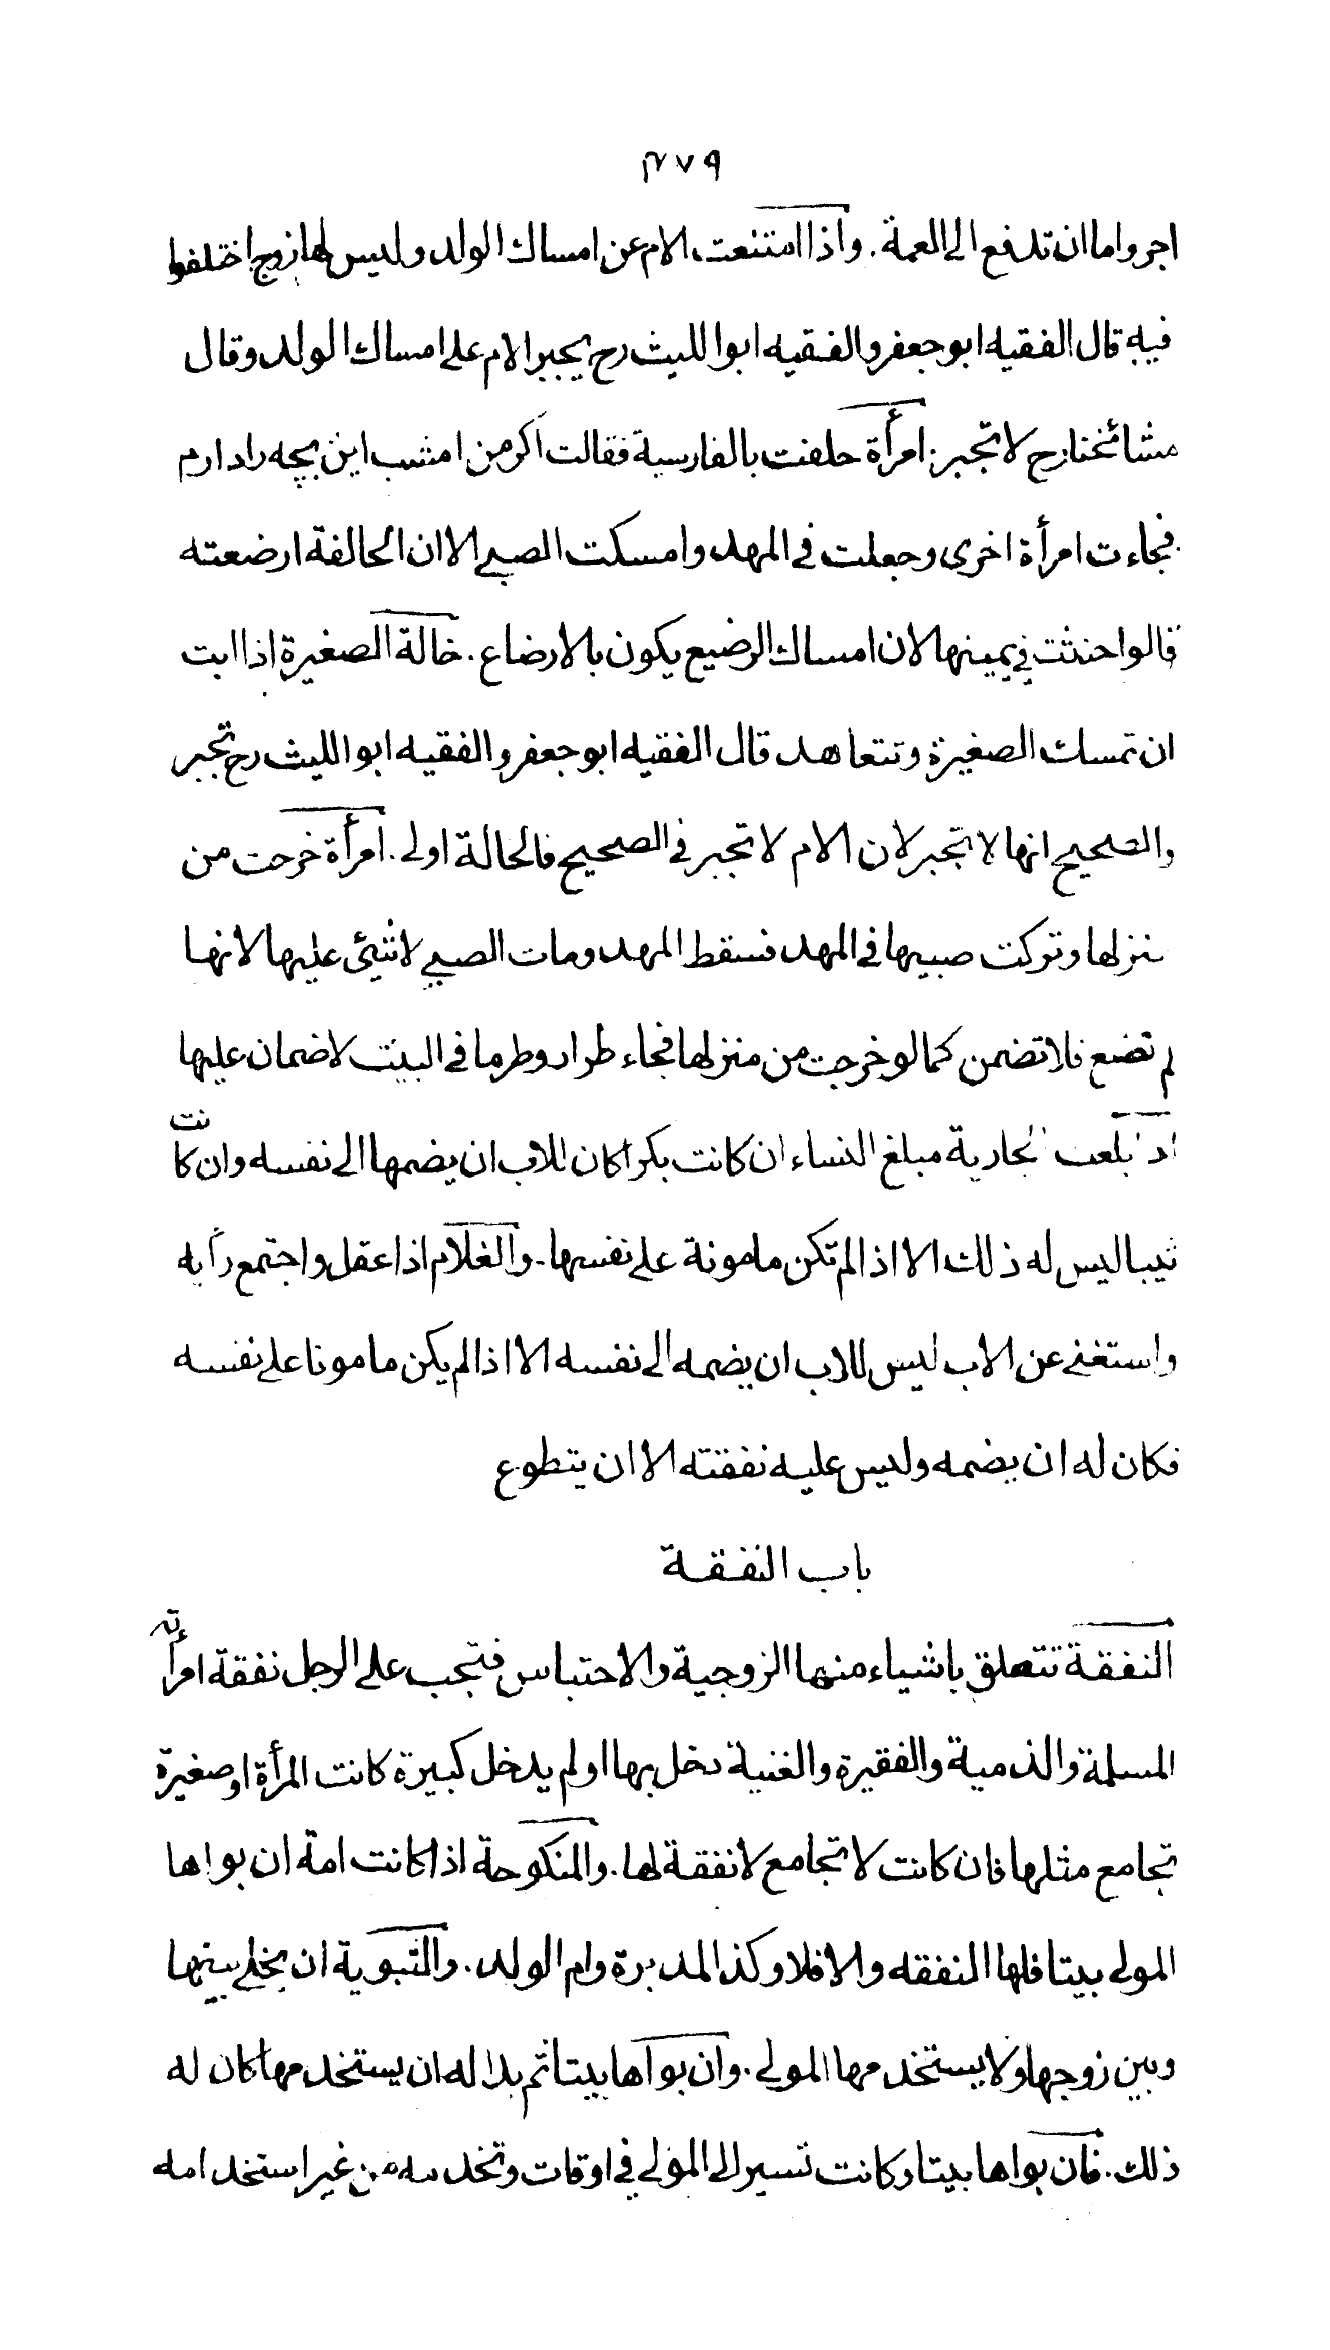 ٣٧٩
اجر واما ان تدفع الى العمة . واذا امتنعت الام عن امساك الولد وليس لها زوج اختلفوا
فيه قال الفقيه ابو جعفر والفقيه ابوا لليث رح يجبر الام على امساك الولد وقال
مشائخنا رح لا تجبر . امرأة حلفت بالفارسية فقالت اكر من امشب اين بچه را دارم
فجاءت امرأة اخرى وجعلت في المهد وامسكت الصبي الا ان الحالفة ارضعته
قالوا حنثت في يمينها لان امساك الرضيع يكون بالارضاع . خالة الصغيرة اذا ابت
ان تمسك الصغيرة وتتعاهد قال الفقيه ابو جعفر والفقيه ابوا لليث رح تجبر
والصحيح انها لا تجبر لان الام لا تجبر في الصحيح فالخالة اولى . امرأة خرجت من
منزلها وتركت صبيها في المهد فسقط المهد ومات الصبي لا شيئ عليها لانها
لم تضع فلا تضمن كما لو خرجت من منزلها فجاء طرار وطر ما في البيت لا ضمان عليها
اذا بلغت الجارية مبلغ النساء ان كانت بكرا كان للاب ان يضمها الى نفسه وان كانت
ثيبا ليس له ذلك الا اذا لم تكن مامونة على نفسها . والغلام اذا عقل واجتمع رأيه
واستغنى عن الاب ليس للاب ان يضمه الى نفسه الا اذا لم يكن مامونا على نفسه
فكان له ان يضمه وليس عليه نفقته الا ان يتطوع
باب النفقة
النفقة تتعلق باشياء منها الزوجية والاحتباس فتجب على الرجل نفقة امرأته
المسلمة والذمية والفقيرة والغنية دخل بها او لم يدخل كبيرة كانت المرأة او صغيرة
تجامع مثلها فان كانت لا تجامع لا نفقة لها . والمنكوحة اذا كانت امة ان بواها
المولى بيتا فلها النفقه والا فلا وكذا المدبرة وام الولد . والتبوية ان يخلي بينها
وبين زوجها ولا يستخدمها المولى . وان بواها بيتا ثم بدا له ان يستخدمها كان له
ذلك . فان بواها بيتا وكانت تسير الى المولى في اوقات وتخدمه من غير استخدامه